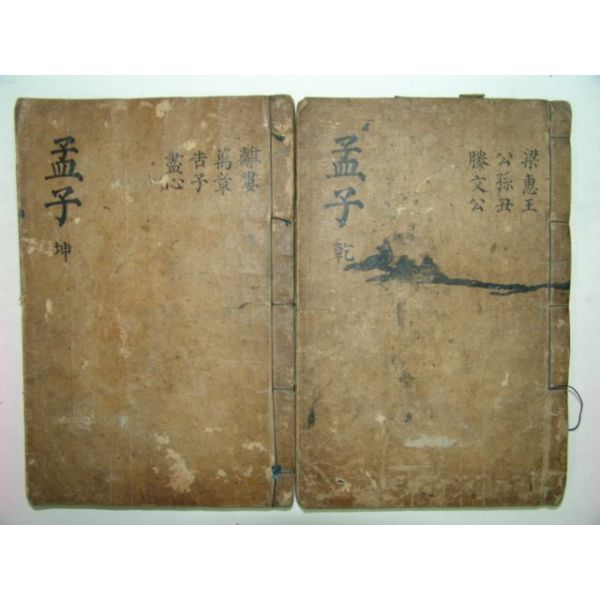 孟子 乾
梁惠王
公孫丑
滕文公
孟子 坤
離婁
萬章
告子
盡心